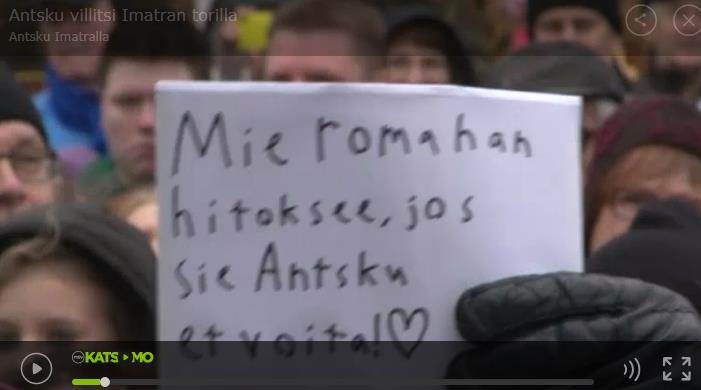 Antsku villitsi Imatran torilla
Antsku Imatralla
Mie romahan
hitoksee, jos
sie Antsku
et voita!♡
mtv KATSOMO